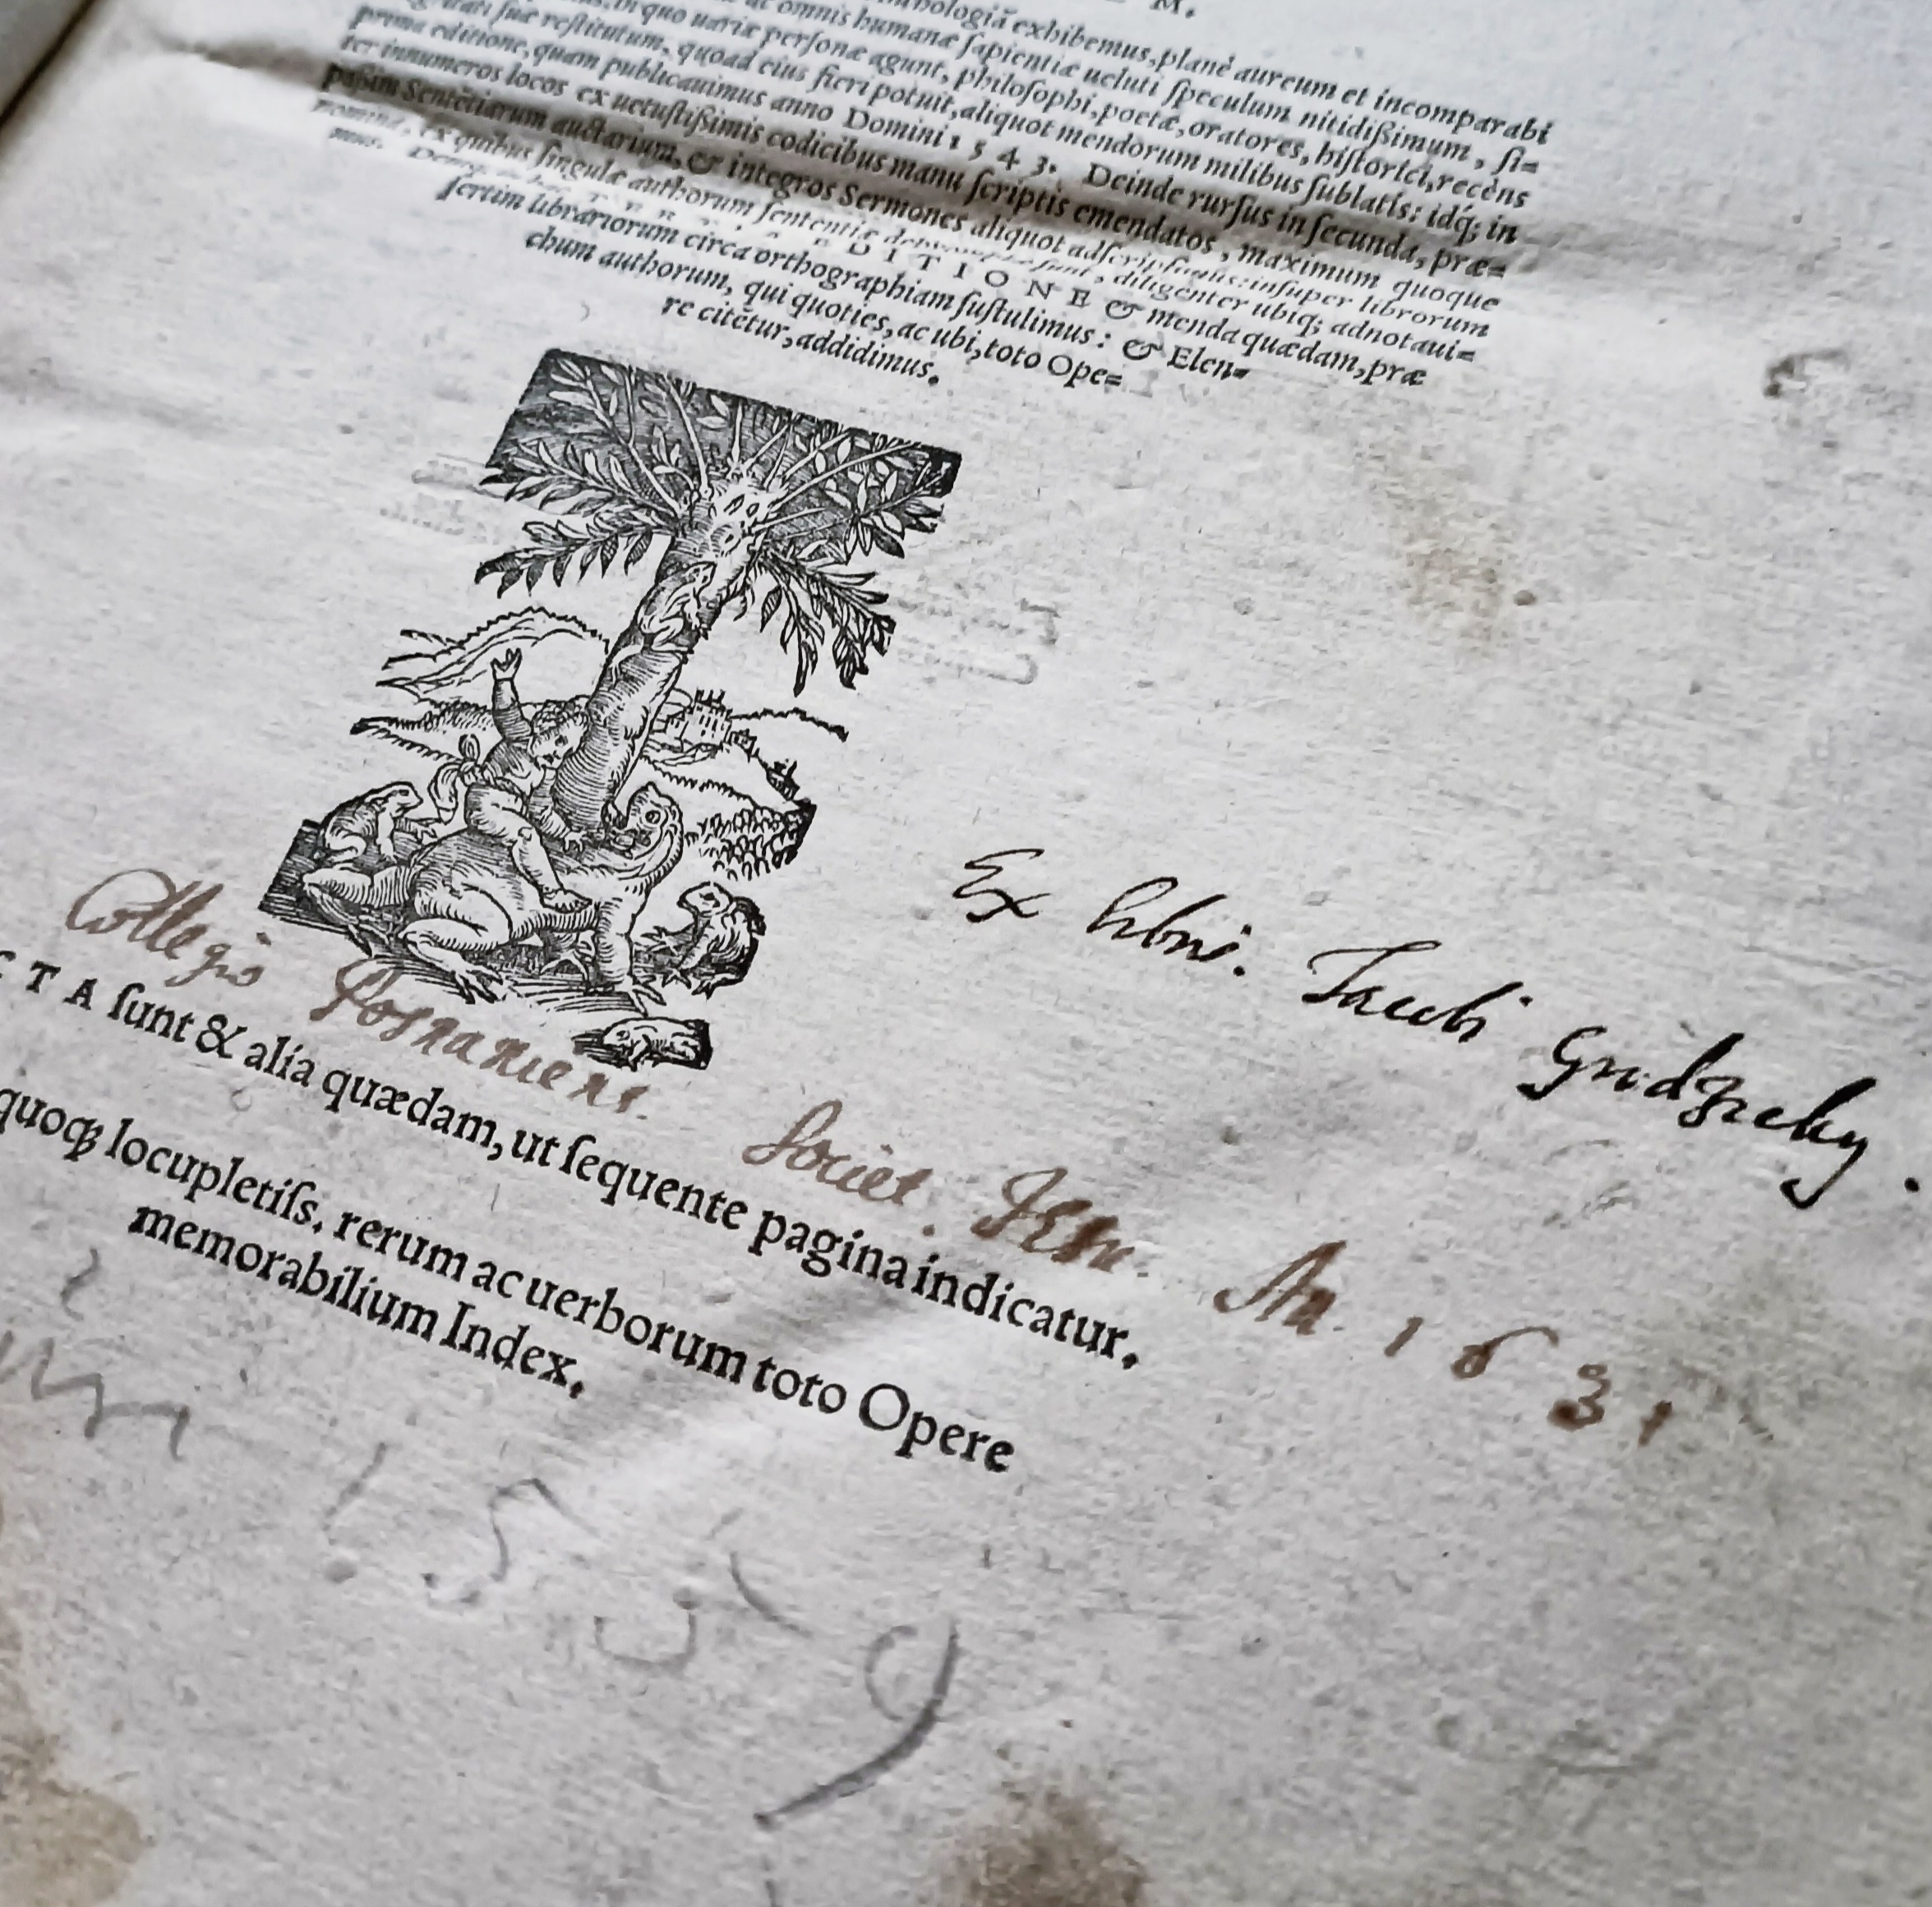 M.
exhibemus, planè aureum et incomparabi
ac omnis humanæ ſapientiæ ueluti ſpeculum nitidißimum, ſi=
in quo uariæ perſonæ agunt, philoſophi, poetæ, oratores, hiſtorici, recèns
ſuæ reſtitutum, quoad eius fieri potuit, aliquot mendorum milibus ſublatis: idq́; in
prima editione, quam publicauimus anno Domini 1 5 4 3. Deinde rurſus in ſecunda, præ=
ter innumeros locos ex uetuſtißimis codicibus manu ſcriptis emendatos, maximum quoque
paßim Sentētiarum auctarium, & integros Sermones aliquot adſcripſimus: inſuper librorum
nomina, ex quibus ſingulæ authorum ſententiæ ſunt, diligenter ubiq; adnotaui=
mus. EDITIONE & menda quædam, præ
ſertim librariorum circa orthographiam ſuſtulimus: & Elen=
chum authorum, qui quoties, ac ubi, toto Ope=
re citētur, addidimus.
Ex libris. Jacobi Grodzicky.
Collegio Posnaniens. Societ. Jesu. An. 1631
CTA ſunt & alia quædam, ut ſequente pagina indicatur.
quoq; locupletiſs. rerum ac uerborum toto Opere
memorabilium Index.